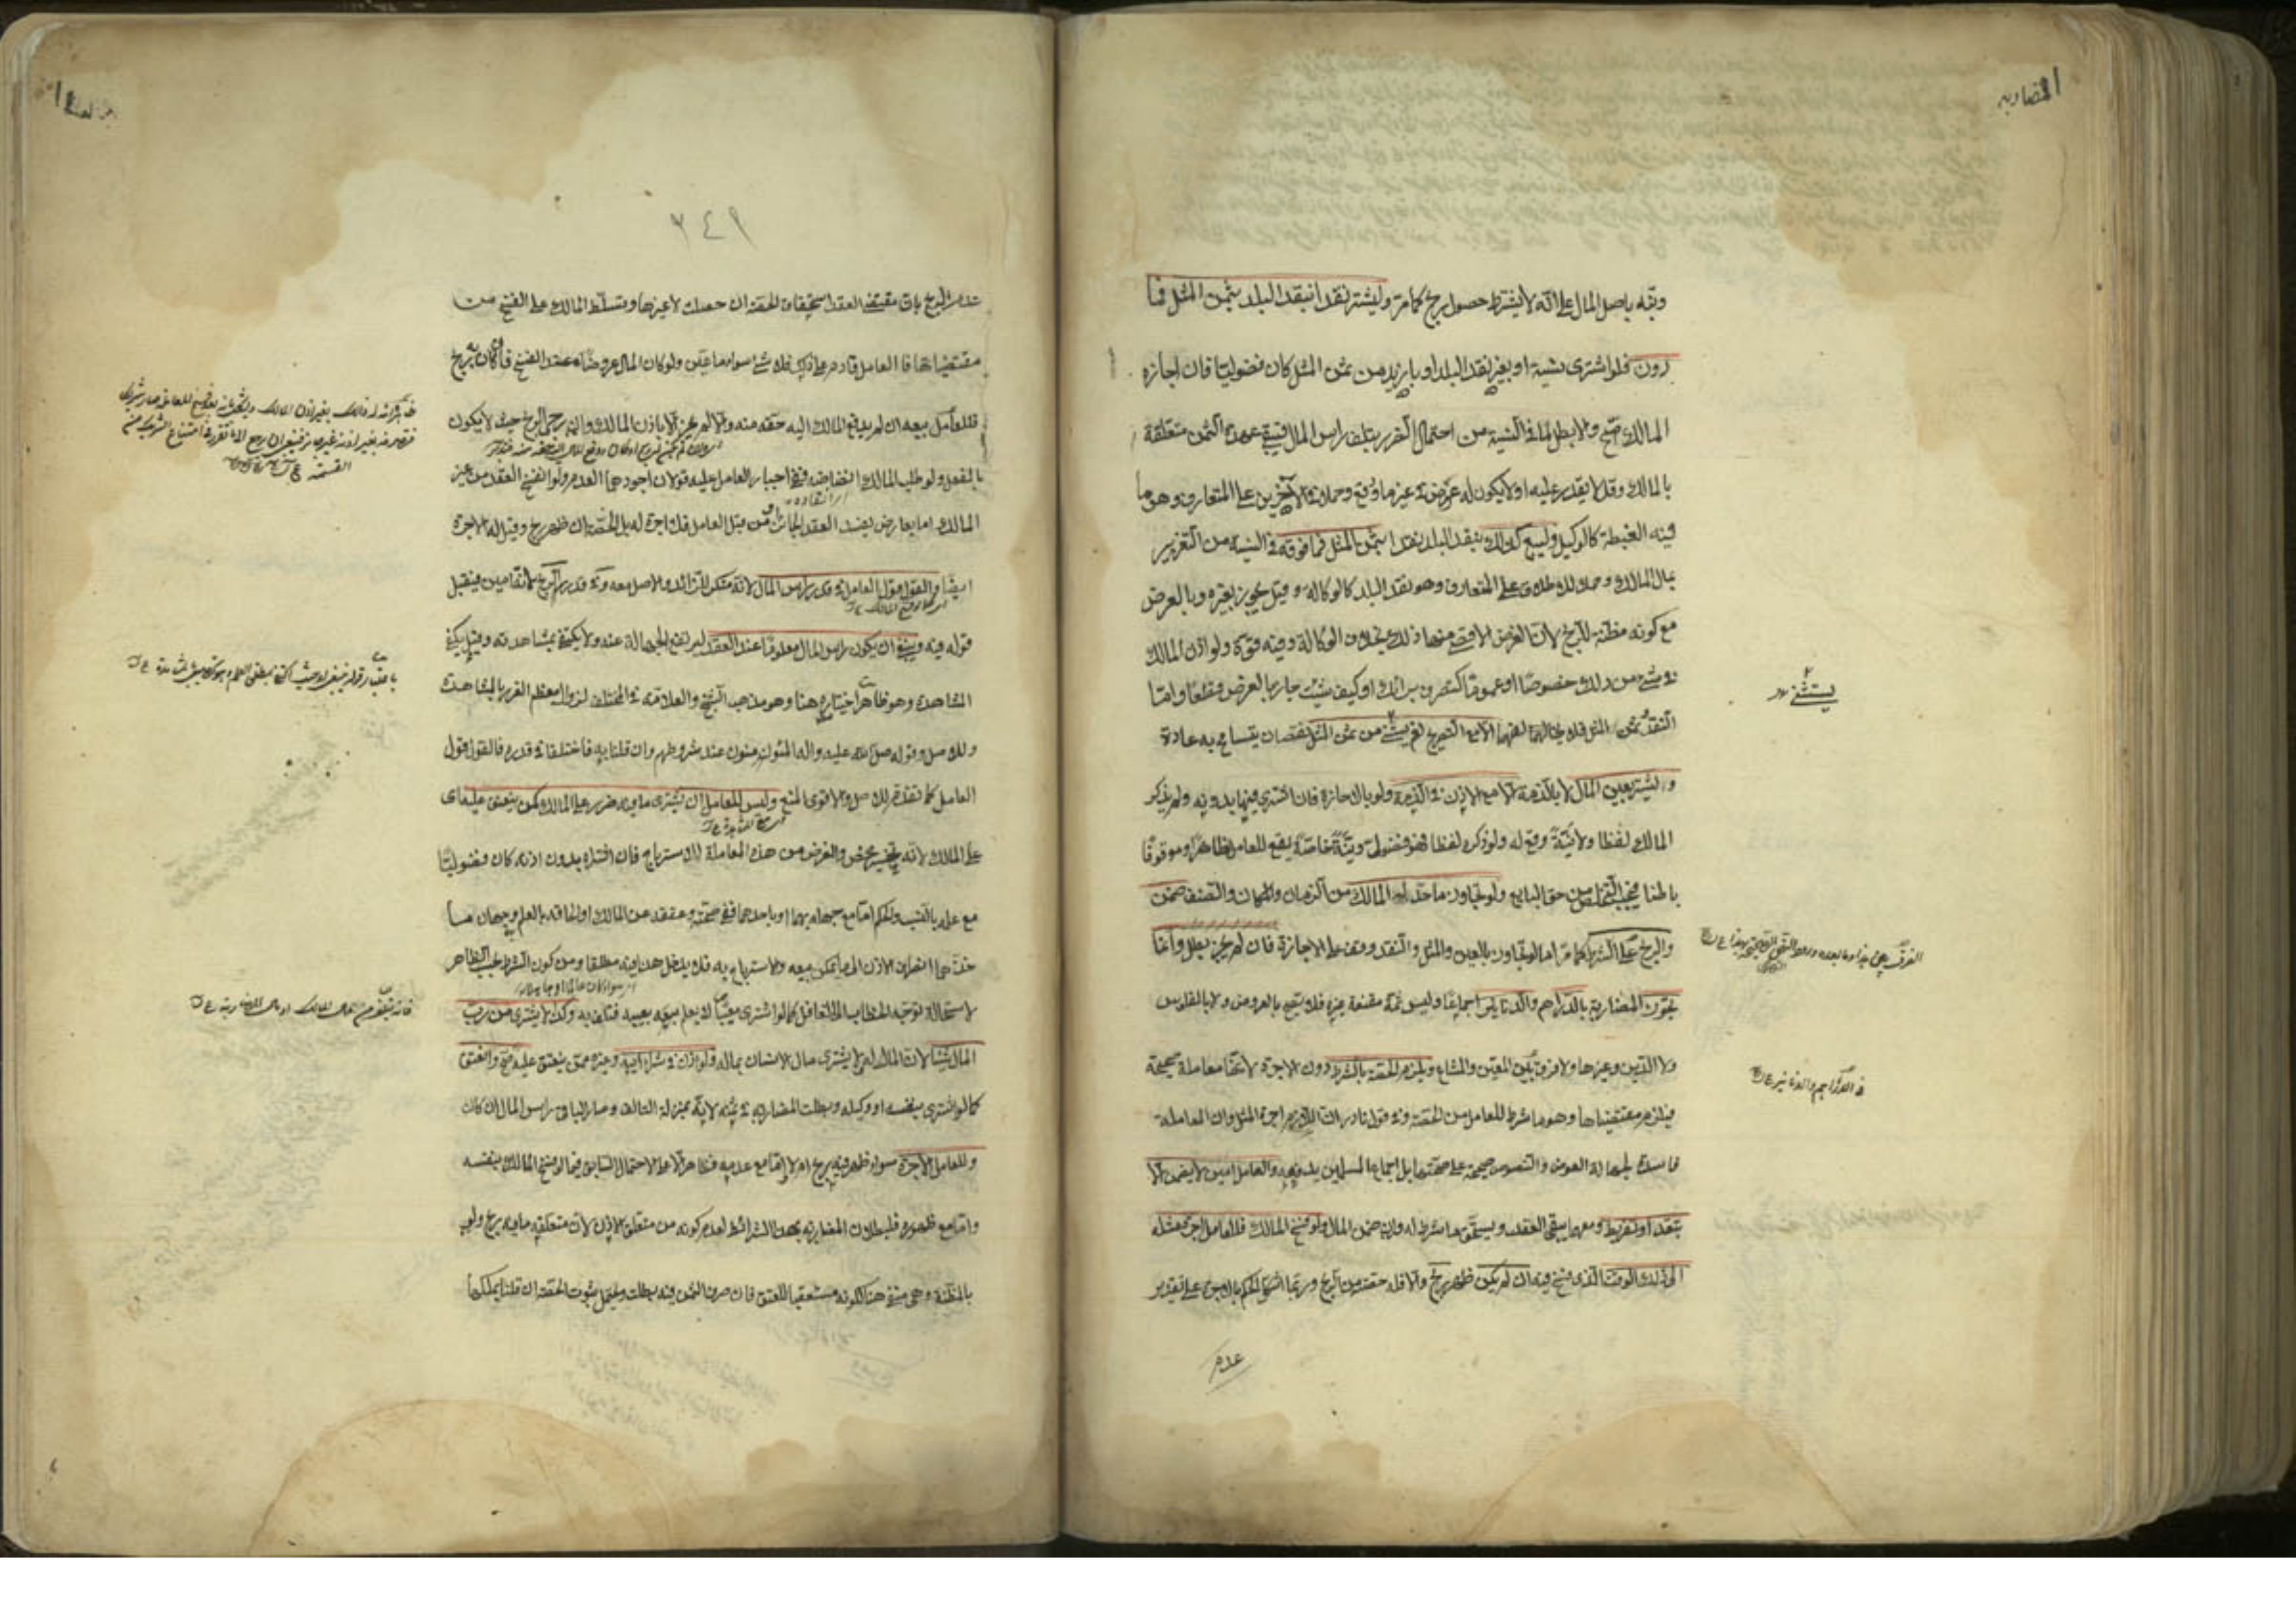 المضاربه
وقيمته باصل المال على انه لا يشترط حصول ربح كما مر وليشتر نقدا بنقد البلد بثمن المثل فما
دون فلو اشترى نسية او بغير نقد البلد او بازيد من ثمن المثل كان فضوليا فان اجازه
المالك صح والا بطل لما في النسية من احتمال الضرر بتلف راس المال فيبقى عهدة الثمن متعلقة
بالمالك وقد لا يقدر عليه او لا يكون له غرض في غير ما دفع وحمله في الاخيرين على المتعارف وهو ما
فيه الغبطة كالوكيل وليبع كذلك بنقد البلد نقدا بثمن المثل فما فوقه لما في النسية من التغرير
بمال المالك وحملا للاطلاق على المتعارف وهو نقد البلد كالوكالة وقيل يجوز بغيره وبالعرض
مع كونه مظنة للربح لان الغرض الاقصى منها ذلك بخلاف الوكالة وفيه قوة ولو اذن المالك
في شيء من ذلك خصوصا او عموما كتصرف برايك او كيف شئت جاز بالعرض قطعا واما
النقد وثمن المثل فلا يخالفهما الا مع التصريح نعم يستثنى من ثمن المثل نقصان يتسامح به عادة
وليشتر بعين المال لا بالذمة الا مع الاذن في الذمة ولو بالاجازة فان اشترى فيها بدونه ولم يذكر
المالك لفظا ولا نية وقع له ولو ذكره لفظا فهو فضولي ونية خاصة يقع للعامل ظاهرا وموقوفا
باطنا فيجب التخلص من حق البايع ولو تجاوز ما حد له المالك من الزمان والمكان والصنف ضمن
والربح على الشرط كما مر اما لو تجاوز بالعين والمثل والنقد وقف على الاجازة فان لم يجز بطل وانما
تجوز المضاربة بالدراهم والدنانير اجماعا وليس ثمة مقنعة غيره فلا تصح بالعروض ولا بالفلوس
ولا الدين وغيرها ولا فرق بين المعين والمشاع ويلزم الحصة بالشرط دون الاجرة لانها معاملة صحيحة
فيلزم مقتضاها وهو ما شرط للعامل من الحصة وفي قول نادر ان اللازم اجرة المثل وان المعاملة
فاسدة لجهالة العوض والنصوص صحيحة على صحتها بل اجماع المسلمين يدفعه والعامل امين لا يضمن الا
بتعد او تفريط ومعهما يبقى العقد ويستحق ما شرط له وان ضمن المال ولو فسخ المالك فللعامل اجرة مثله
الى ذلك الوقت الذي فسخ فيه ان لم يكن ظهر ربح والا فله حصته من الربح وربما اشكل الحكم بالاجرة على تقدير
عدم
يستثنى
في الدراهم والدنانير
٣٤٩
عدم الربح بان مقتضى العقد استحقاق الحصة ان حصلت لا غيرها وتسلط المالك على الفسخ من
مقتضياتها فالعامل قادم على ذلك فلا شيء سواه ما عين ولو كان المال عروضا عند الفسخ فان كان به ربح
فللعامل بيعه ان لم يدفع المالك اليه حقه منه والا لم يجز الا باذن المالك وان رجى الربح حينئذ لا يكون
بالفعل ولو طلب المالك انضاضه ففي اجبار العامل عليه قولان اجودهما العدم ولو انفسخ العقد من غير
المالك اما بعارض يفسد العقد الجائز او من قبل العامل فلا اجرة له بل الحصة ان ظهر ربح وقيل له الاجرة
ايضا والقول قول العامل في قدر راس المال لانه منكر للزائد والاصل معه وفي قدر الربح لانه امين فيقبل
قوله فيه وينبغي ان يكون راس المال معلوما عند العقد ليرتفع الجهالة عنه ولا يكتفى بمشاهدته وقيل يكفي
المشاهدة وهو ظاهر اختياره هنا وهو مذهب الشيخ والعلامة في المختلف لزوال معظم الغرر بالمشاهدة
وللاصل وقوله صلى الله عليه واله المؤمنون عند شروطهم وان قلنا به فاختلفا في قدره فالقول قول
العامل كما تقدم للاصل والاقوى المنع وليس للعامل ان يشترى ما فيه ضرر على المالك كمن ينعتق عليه اى
على المالك لانه تخسير محض والغرض من هذه المعاملة الاسترباح فان اشتراه بدون اذنه كان فضوليا
مع علمه بالنسب والحكم اما مع جهله بهما او باحدهما ففي صحته وعتقه عن المالك او الحاقه بالعالم وجهان ما
خذهما انصراف الاذن الى ما يمكن بيعه والاسترباح به فلا يدخل هذا فيه مطلقا ومن كون الشرط بحسب الظاهر
لاستحالة توجه الخطاب الى الغافل كما لو اشترى معيبا لا يعلم بعيبه فتلف به وكذا لا يشترى من رب
المال شيئا لان المال له ولا يشترى مال الانسان بماله ولو اذن في شراء ابيه وغيره ممن ينعتق عليه صح وانعتق
كما لو اشترى بنفسه او وكيله وبطلت المضاربة في ثمنه لانه بمنزلة التالف وصار الباقي راس المال ان كان
وللعامل الاجرة سواء ظهر فيه ربح ام لا اما مع عدمه فظاهر الا على الاحتمال السابق فيما لو فسخ المالك بنفسه
واما مع ظهوره فلبطلان المضاربة بهذا الشراء لعدم كونه من متعلق الاذن لان متعلقه ما فيه ربح ولو
بالمظنة وهي منفية هنا لكونه مستعقبا للعتق فان صرف الثمن فيه بطلت ويحتمل ثبوت الحصة ان قلنا بملكها